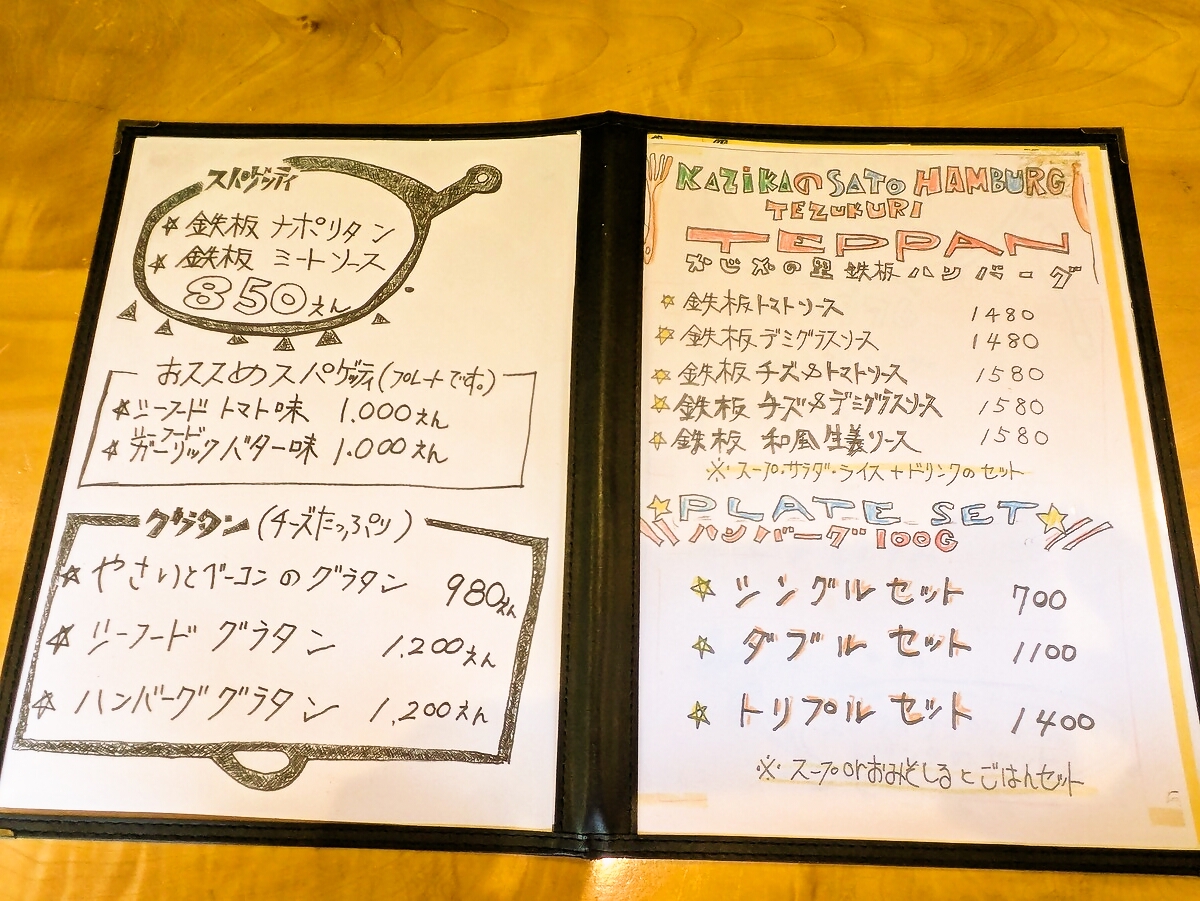 スパゲッティ
☆ 鉄板 ナポリタン
☆ 鉄板 ミートソース
850えん
おススめスパゲッティ(プレートです。)
☆シーフード トマト味 1.000えん
シーフード
☆ ガーリックバター味 1.000えん
グラタン (チーズたっぷり)
☆ やさいとベーコンのグラタン 980えん
☆ シーフード グラタン 1.200えん
☆ ハンバーググラタン 1,200えん
KAZIKAの SATO HAMBURG
TEZUKURI
TEPPAN
かじかの里 鉄板 ハンバーグ
☆ 鉄板トマトソース 1480
☆ 鉄板デミグラスソース 1480
☆ 鉄板 チーズ&トマトソース 1580
☆ 鉄板 チーズ&デミグラスソース 1580
☆ 鉄板 和風生姜ソース 1580
※ スープ・サラダ・ライス+ドリンクのセット
☆ PLATE SET ☆
ハンバーグ 100G
☆ シングル セット 700
☆ ダブル セット 1100
☆ トリプル セット 1400
※ スープorおみそしるとごはんセット